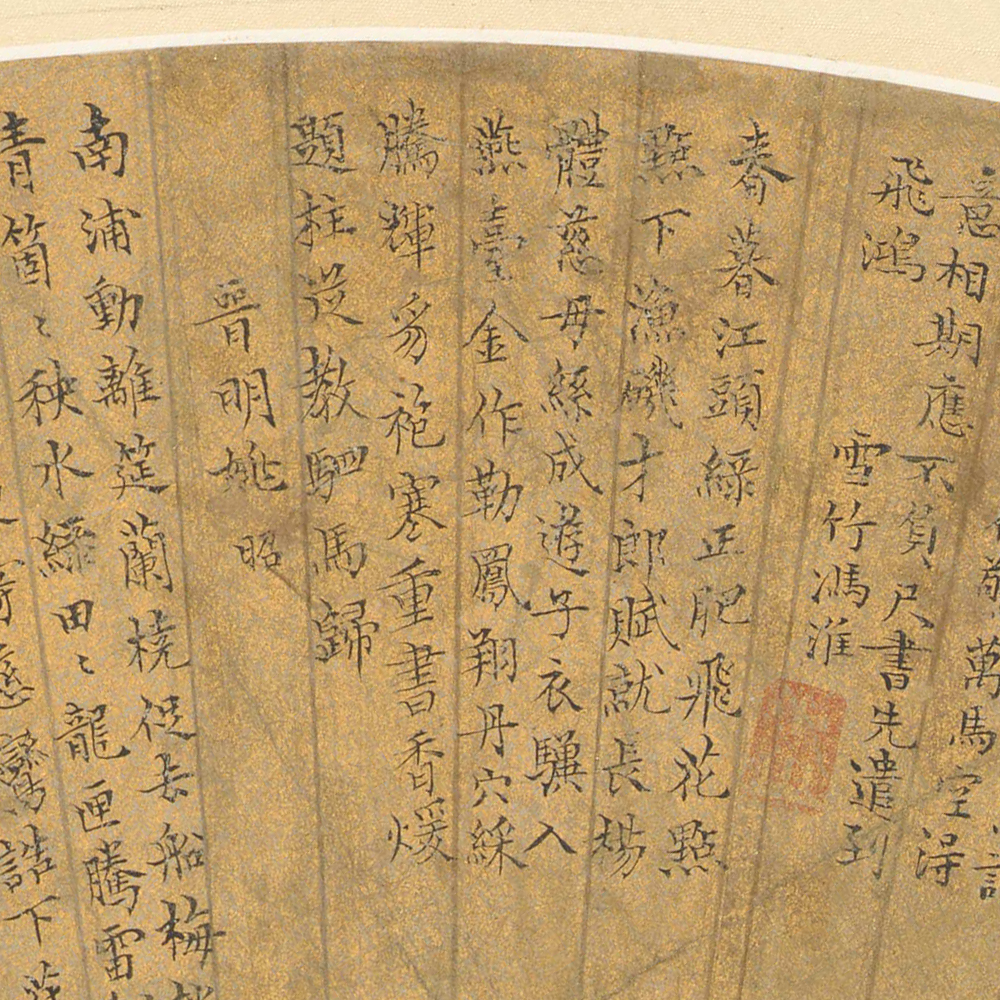 萬馬空淂
意相期應不負尺書先遣到
飛鴻
雪竹馮淮
春暮江頭綠正肥飛花點
點下漁磯才郎賦就長楊
體慈母絲成遊子衣驥入
燕臺金作勒鳳翔丹穴綵
騰輝豸袍寒重書香煖
題柱從教駟馬歸
晉明姚昭
南浦動離筵蘭橈促去船梅
青箇〻秧水綠田〻龍匣騰雷
慈鸞誥下